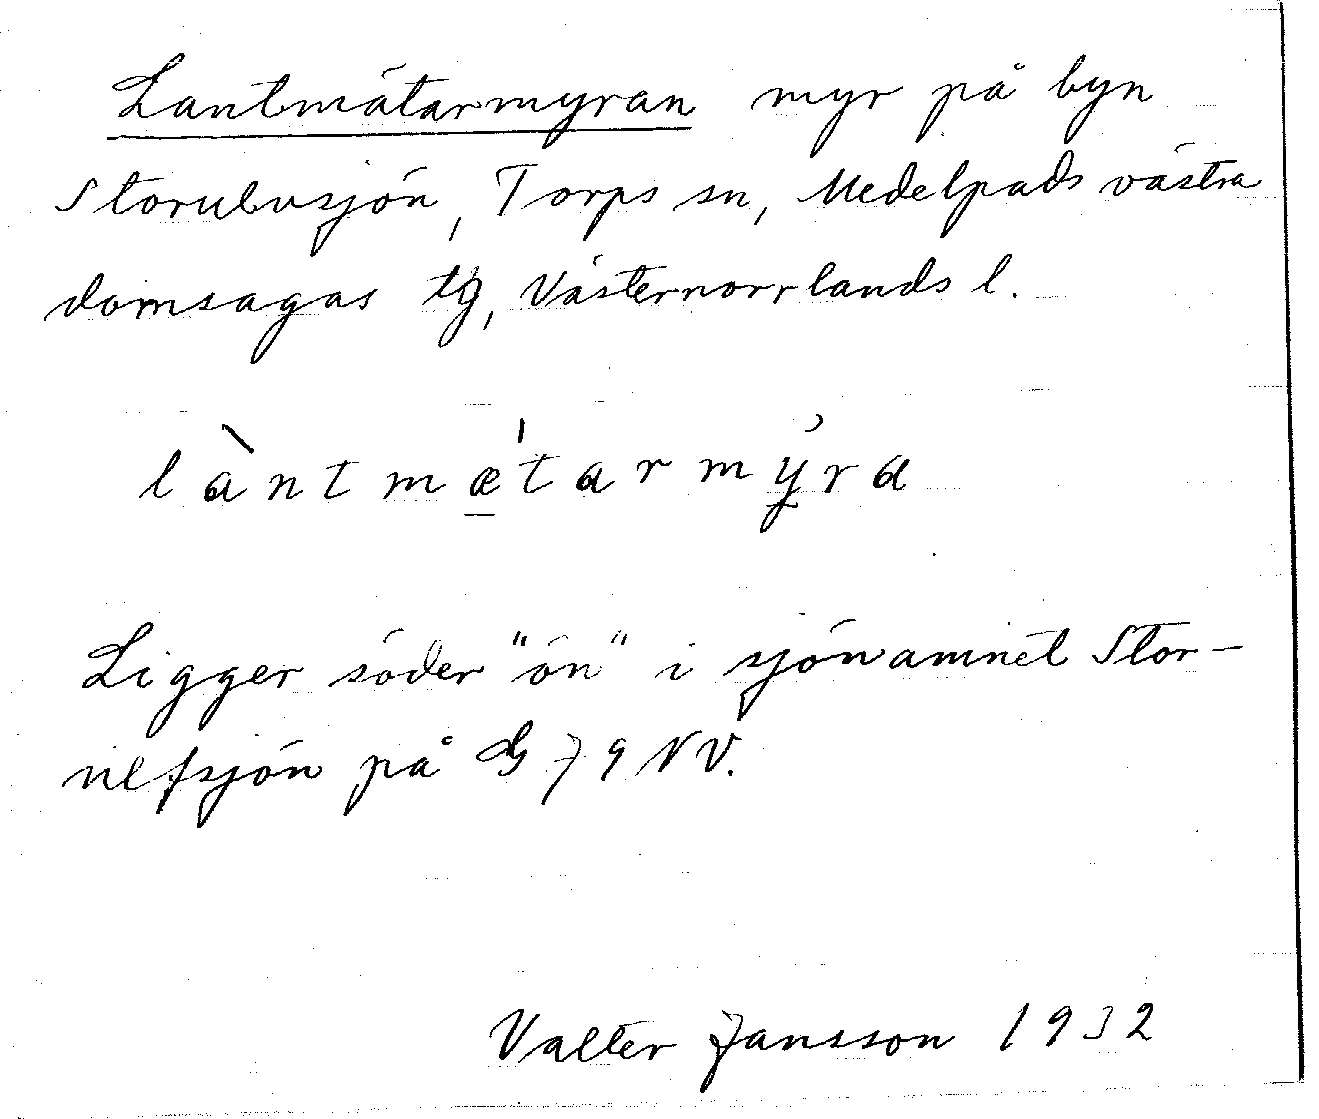 Lantmätarmyran myr på byn
Storulvsjön, Torps sn, Medelpads västra
domsagas tg, Västernorrlands l.
làntmætarmyra
Ligger söder "ön" i sjönamnet Stor-
ulfsjön på G 79 NV.
Valter Jansson 1932